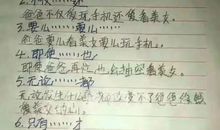 爸爸不仅玩手机还要看美女。
3.要么……要么……
爸爸要么看美女要么玩手机。
4.即使……也……
即使爸爸再忙也会抽空看美女。
5.无论……都……
无论发生什么事都改变不了爸爸
看美女
6.只有……才